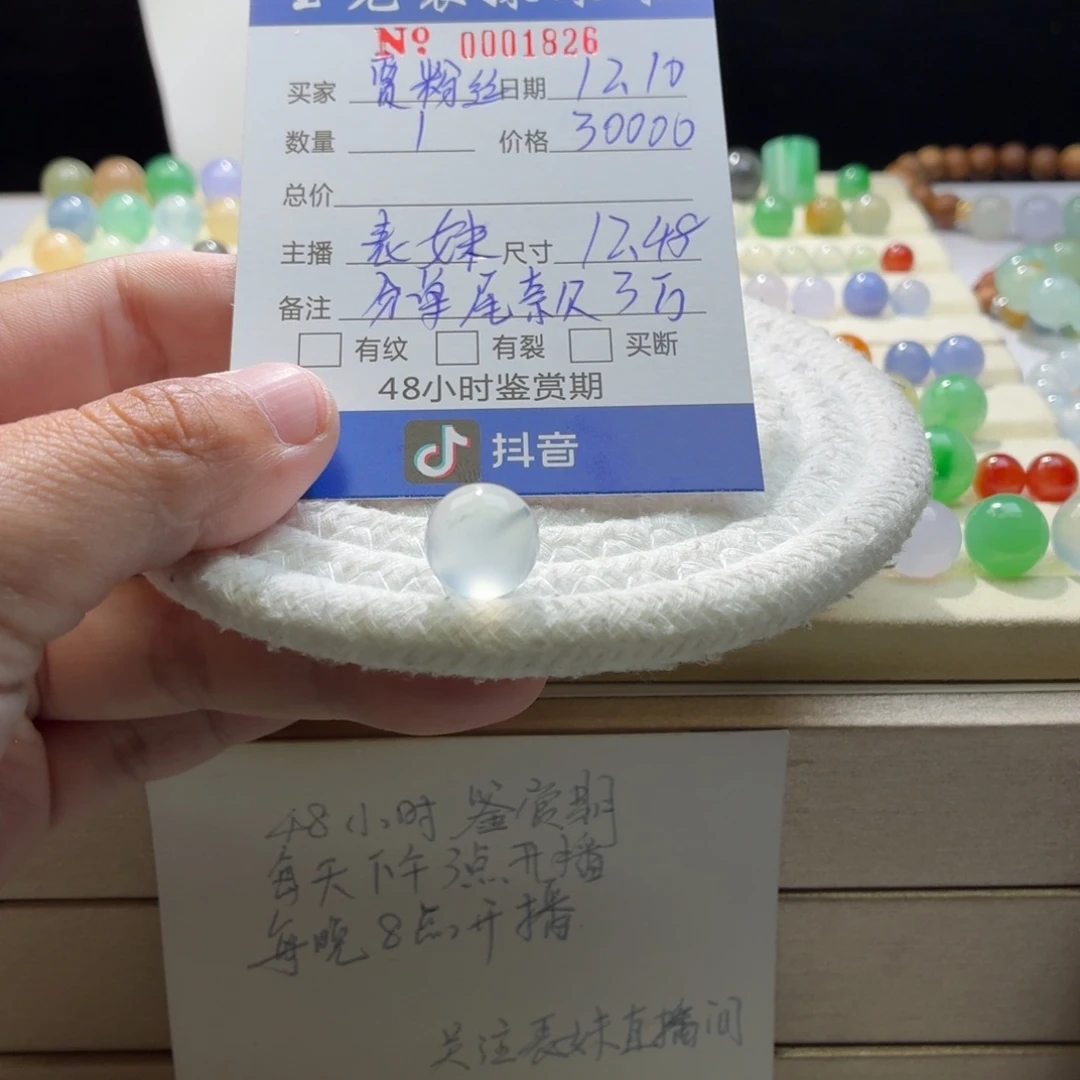 № 0001826
买家 贾粉丝 日期 12.10
数量 1 价格 30000
总价
主播 表妹 尺寸 12.48
备注 分单尾款 3万
有纹 有裂 买断
48小时鉴赏期
抖音
48小时鉴赏期
每天下午3点开播
每晚8点开播
关注表妹直播间